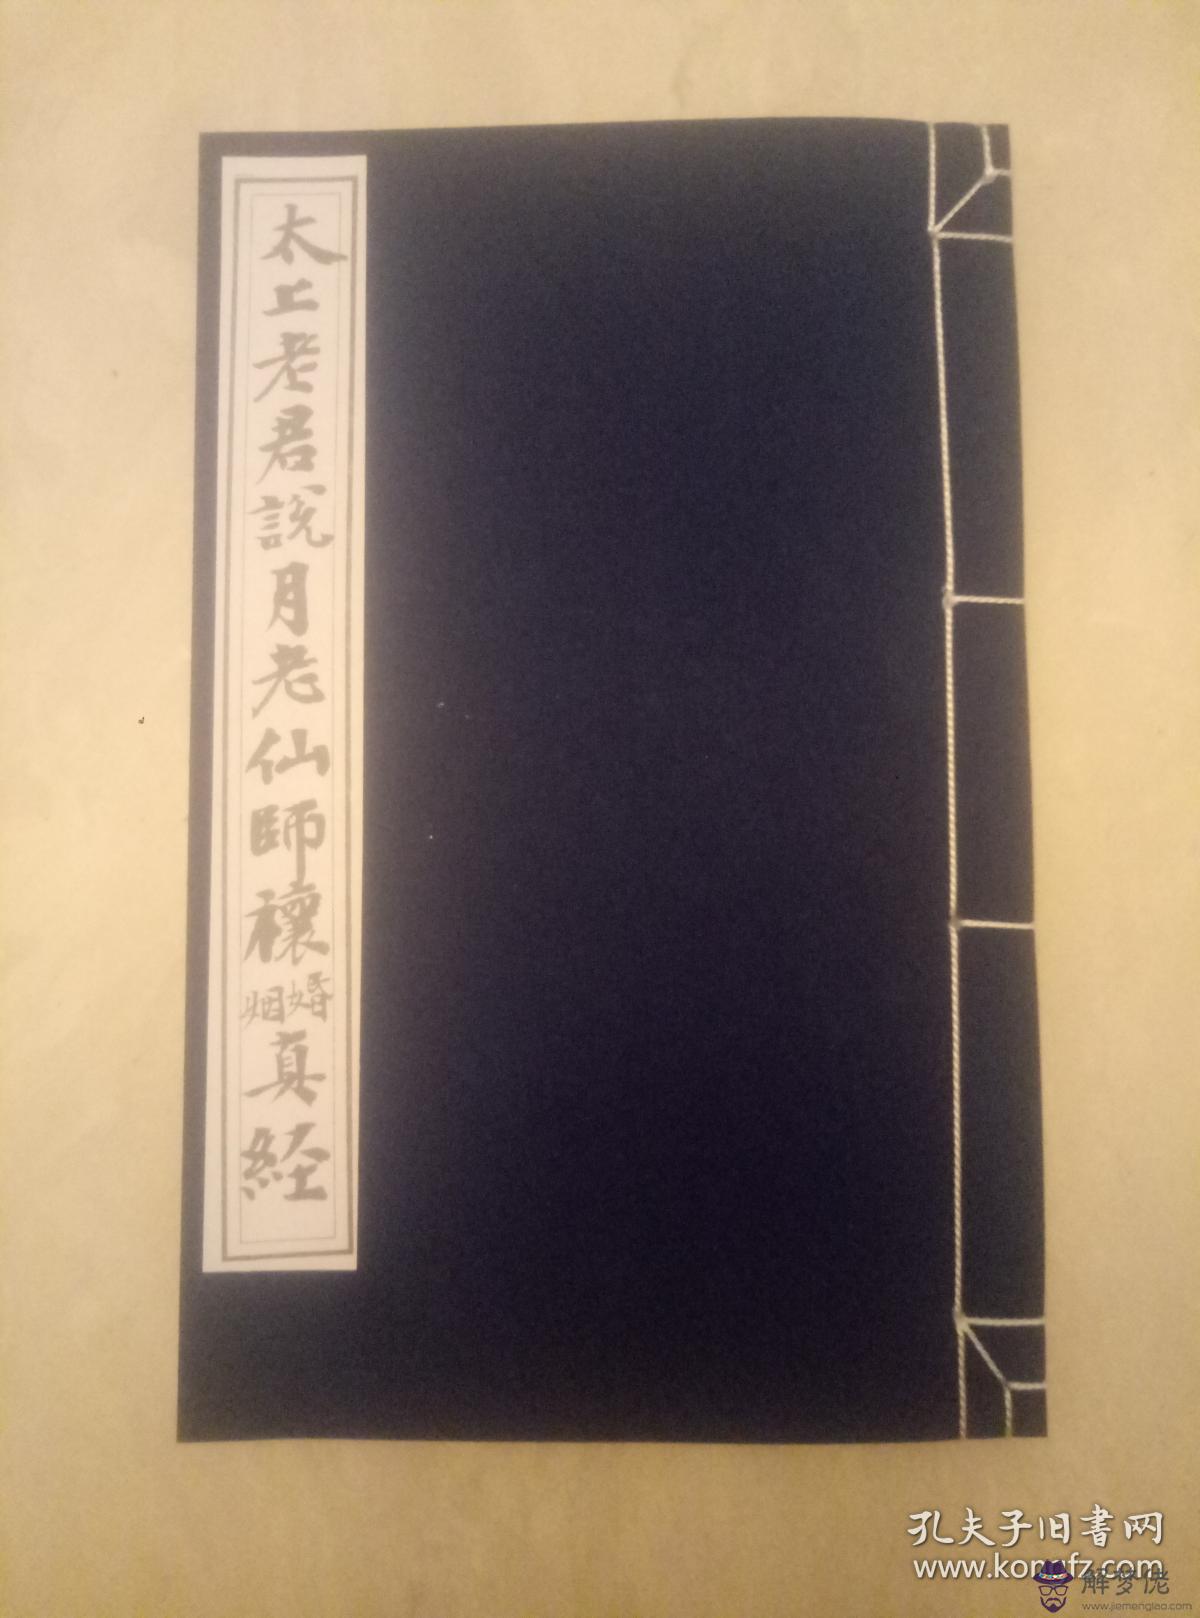 太上老君說月老仙師禳婚姻真経
孔夫子旧書网
www.kongfz.com
解梦佬
www.jiemenglao.com